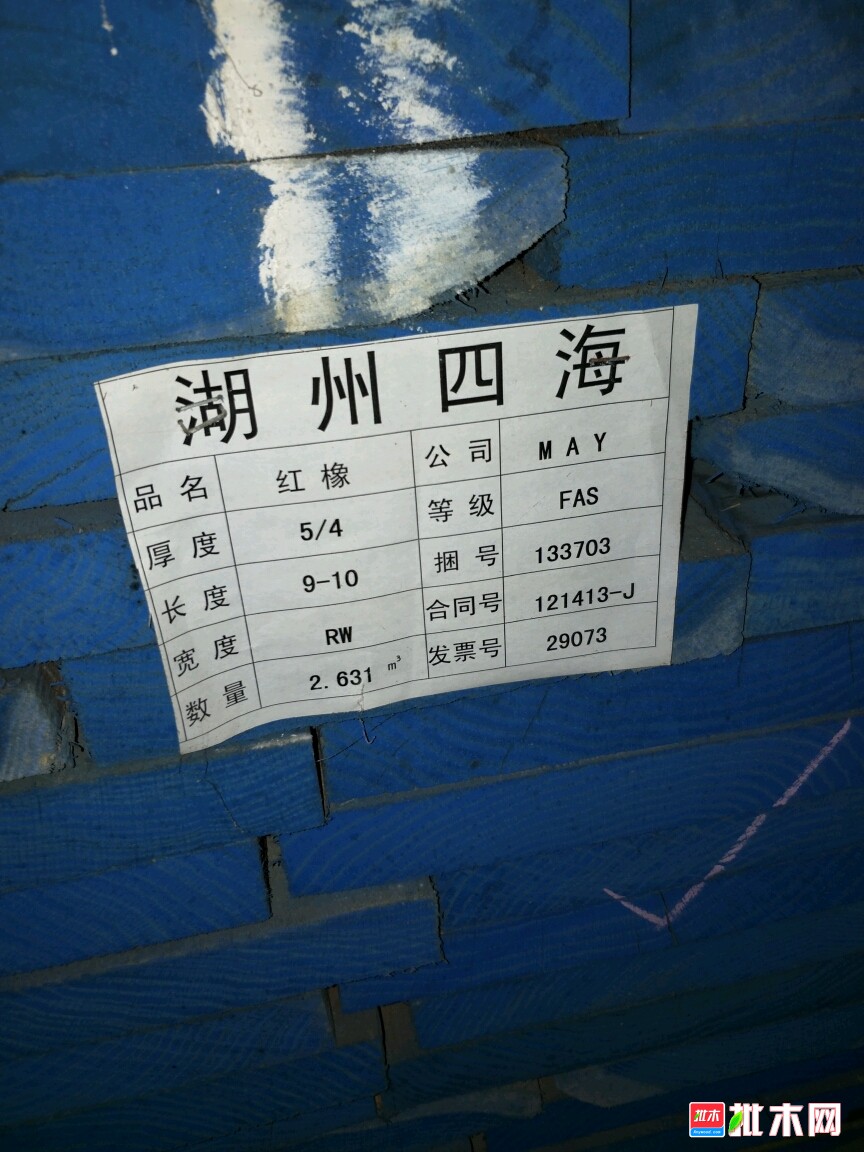 湖州四海
品名 红橡 公司 MAY
厚度 5/4 等级 FAS
长度 9-10 捆号 133703
宽度 RW 合同号 121413-J
数量 2.631 m³ 发票号 29073
批木 批木网